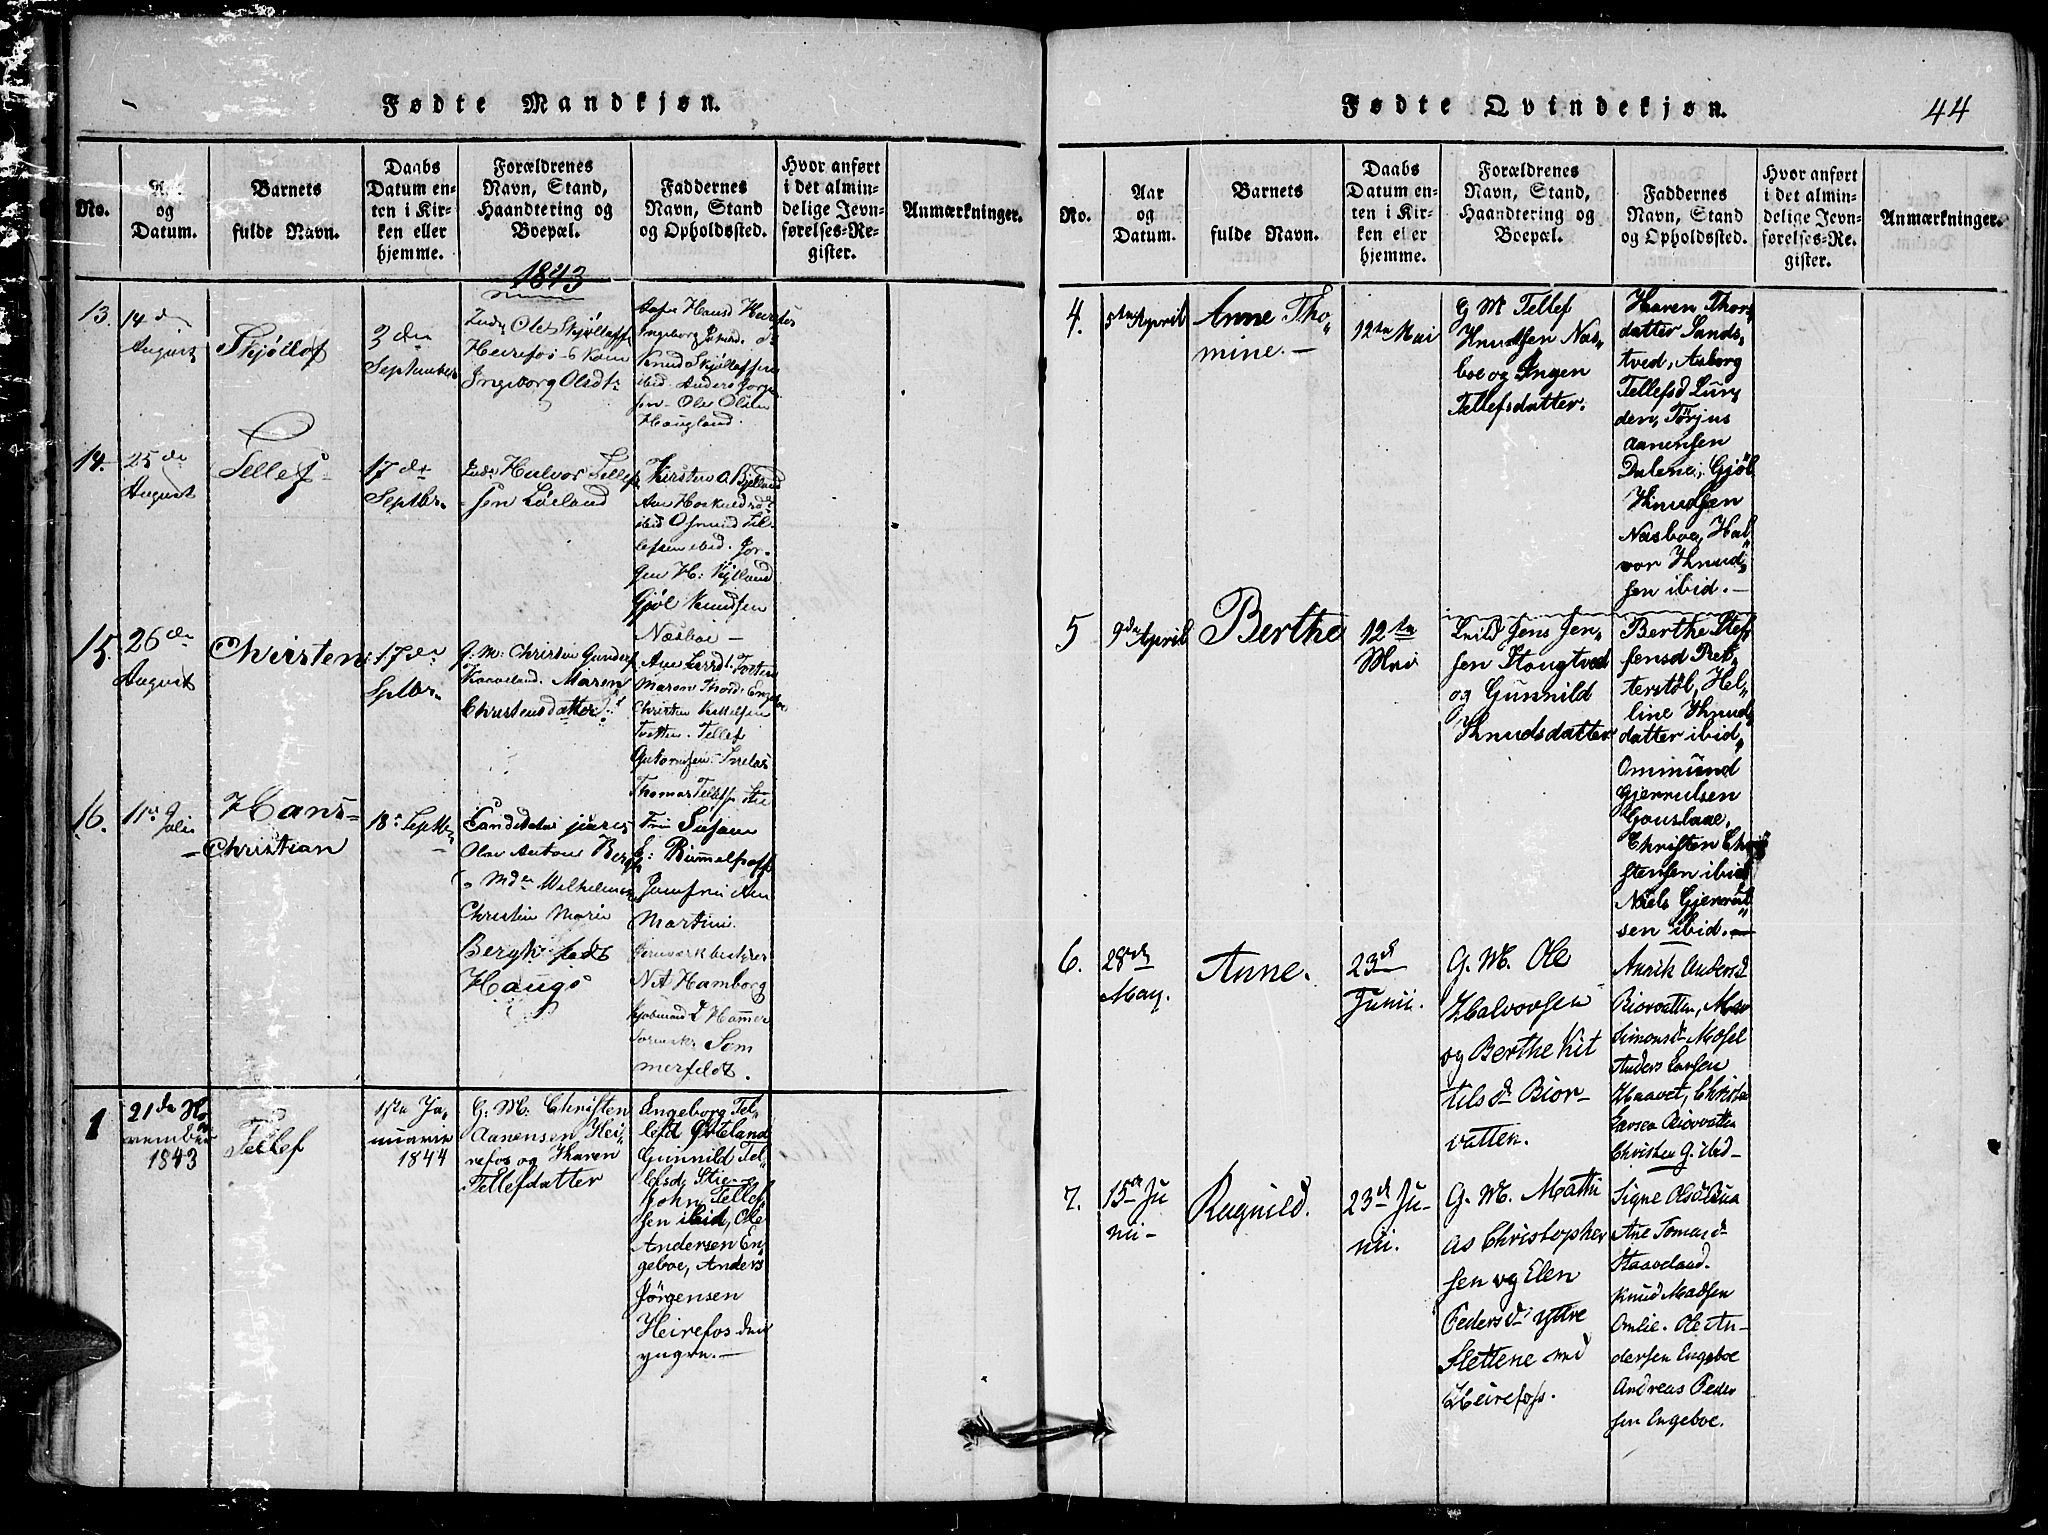 Fødte Mandkjøn.
No.
Aar
og
Datum.
Barnets
fulde Navn.
Daabs
Datum en-
ten i Kir-
ken eller
hjemme.
Forældrenes
Navn, Stand,
Haandtering og
Boepæl.
Faddernes
Navn, Stand
og Opholdssted.
Hvor anført
i det almin-
delige Jevn-
førelses-Re-
gister.
Anmærkninger.
1843
13.
14 de
August
Skjøllof
3 den
September
Ole Skjøllofs
Heirefos
Ingeborg Olsdtr
Knud Skjøllefsen
ibid. Anders Jørgen
sen Ole Olsen
Haugland.
14.
25 de
August
Tellef
17 de
Septbr.
Halvor Tellef
sen Løiland
Kirsten O. Bjelland
ibid Osmund Tel-
lefsen ibid. Jør-
gen H: Kylland
Gjøl Knudsen
Næsboe –
15.
26 de
August
Christen
17 de
Septbr.
G. M. Christen Gunders
Kaaveland. Maren
Christensdatter
Christen Kittelsen
Tvetten. Tellef
Thomas Tellefs. Stie
16.
11te Juli
Hans
Christian
18 Septbr
Candidatus juris
Ole Anton Bergh
og Mde Wilhelmine
Christin Marie
Bergh født
Haugs
Fru Susane
E: Rummelhoff
Jomfru Ane
Martini.
Jernværksbestyrer
N A Hamborg
Kjøbmand L Hammer
Sorenskr. Som
merfeldt.
1
21de No
vember
1843
Tellef
1ste Ja-
nuarie
1844
G. M: Christen
Aanensen Hei-
refos og Karen
Tellefdatter
Engeborg Tel-
lefd Ørteland
Gunnild Tel-
lefsd, Stie
John Tellef
sen ibid, Ole
Andersen En-
geboe, Anders
Jørgensen
Heirefos den
yngre. –
Fødte Qvindekjøn.
44
No.
Aar
og
Datum.
Barnets
fulde Navn.
Daabs
Datum en-
ten i Kir-
ken eller
hjemme.
Forældrenes
Navn, Stand,
Haandtering og
Boepæl.
Faddernes
Navn, Stand
og Opholdssted.
Hvor anført
i det almin-
delige Jevn-
førelses-Re-
gister.
Anmærkninger.
4.
5te April
Anne Tho-
mine. –
12te Mai
G M Tellef
Knudsen Næs-
boe og Ingen
Tellefsdatter.
Karen Thors
datter Lands-
tved, Asborg
Tellefsd Lun
den, Tørjus
Aanensen
Dalene, Gjøl
Knudsen
Næsboe, Hal
vor Knud-
sen ibid. –
5
9de April
Berthe
12te
Mai
Jens Jen-
sen Hougtved
og Gunnild
Knudsdatter
Berthe Stef
fensd Ret-
terstøl, Hel-
line Knuds
datter ibid,
Ommund
Gjerrulsen
Gouslaae,
Christen Chri
stensen ibid
Niels Gjerrul
sen ibid. –
6.
28de
May.
Anne.
23d
Junii.
G. M. Ole
Halvorsen
og Berthe Kit
tilsd Bior-
vatten.
Anrik Andersd
Biorvatten, Mar
Simonsd Mosel
Anders Larsen
Haavet, Christen
Larsen Biorvatten
Christen G. ibid –
7.
15de Ju
nii –
Ragnild.
23d Ju-
nii.
G. M. Mathi
as Christopher
sen og Elen
Pedersd yttre
Slettene ved
Heirefoss.
Signe Olsd Bua
Ane Tomasd
Kaaveland.
Knud Madsen
Omlie. Ole An-
dersen Engeboe
Andreas Peder
sen Engeboe.